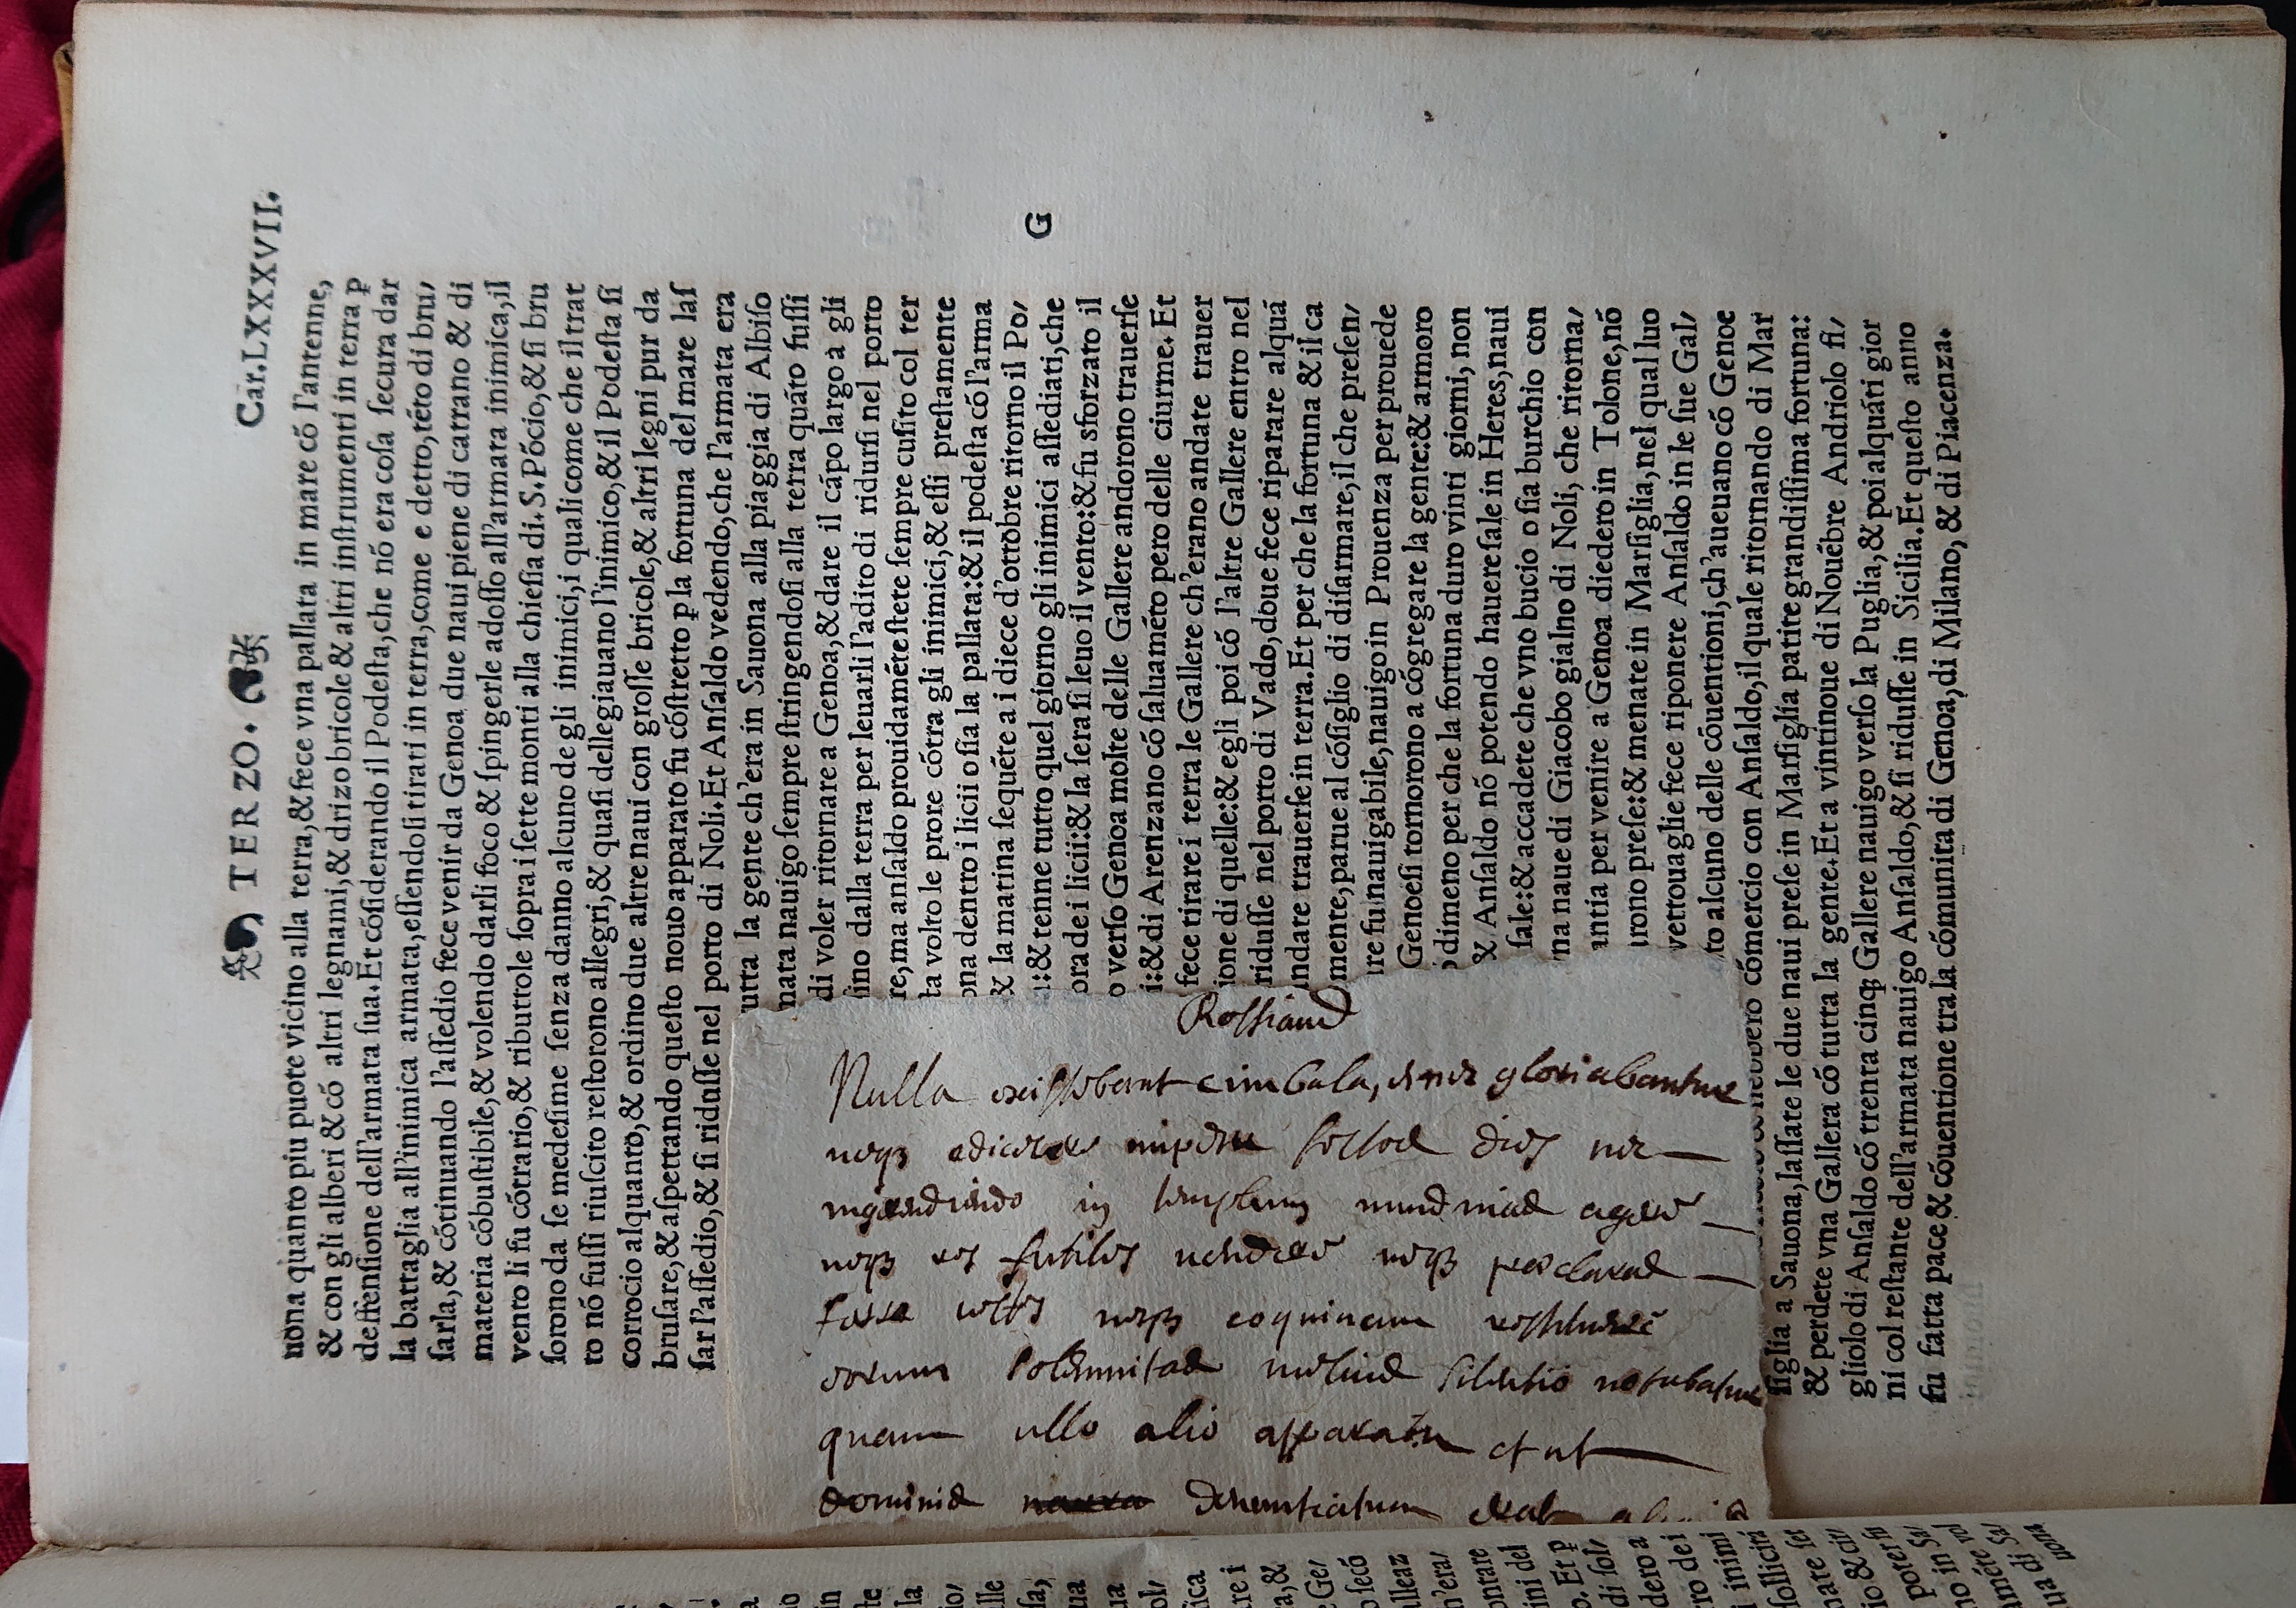 TERZO. Car. LXXXVII.
uona quanto piu puote vicino alla terra, & fece vna pallata in mare có l'antenne,
& con gli alberi & có altri legnami, & drizo bricole & altri inſtrumenti in terra ꝑ
deffenſione dell'armata ſua. Et cóſiderando il Podeſta, che nó era coſa ſecura dar
la battaglia all'inimica armata, eſſendoſi tirati in terra, come e detto, tétò di bru/
ſarla, & cótinuando l'aſſedio fece venir da Genoa due naui piene di catrano & di
materia cóbuſtibile, & volendo darli foco & ſpingerle adoſſo all'armata inimica, il
vento li fu cótrario, & ributtole ſopra i ſette monti alla chieſia di. S. Pócio, & ſi bru
ſorono da ſe medeſime ſenza danno alcuno de gli inimici, i quali come che il trat
to nó fuſſi riuſcito reſtorono allegri, & quaſi dellegiauano l'inimico, & il Podeſta ſi
corrocio alquanto, & ordino due altre naui con groſſe bricole, & altri legni pur da
bruſare, & aſpettando queſto nouo apparato fu cóſtretto ꝑ la fortuna del mare laſ
ſar l'aſſedio, & ſi riduſſe nel porto di Noli. Et Anſaldo vedendo, che l'armata era
utta la gente ch'era in Sauona alla piaggia di Albiſo
mata nauigo ſempre ſtringendoſi alla terra quáto fuſſi
di voler ritornare a Genoa, & dare il cápo largo a gli
ſino dalla terra per leuarli l'adito di ridurſi nel porto
re, ma anſaldo prouidaméte ſtete ſempre cuſito col ter
ta volto le prore cótra gli inimici, & eſſi preſtamente
ona dentro i licii o ſia la pallata: & il podeſta có l'arma
& la matina ſequéte a i diece d'ottobre ritorno il Po/
: & tenne tutto quel giorno gli inimici aſſediati, che
ora dei licii: & la ſera ſi leuo il vento: & fu sforzato il
o verſo Genoa molte delle Gallere andorono trauerſe
i: & di Arenzano có ſaluaméto pero delle ciurme. Et
fece tirare i terra le Gallere ch'erano andate trauer
ione di quelle: & egli poi có l'altre Gallere entro nel
riduſſe nel porto di Vado, doue fece riparare alquá
ndate trauerſe in terra. Et per che la fortuna & il ca
mente, parue al cóſiglio di diſarmare, il che preſen/
re fu nauigabile, nauigo in Prouenza per prouede
Genoeſi tornorono a cógregare la gente: & armoro
dimeno per che la fortuna duro vinti giorni, non
& Anſaldo nó potendo hauere ſale in Heres, naui
ſale: & accadete che vno bucio o ſia burchio con
na naue di Giacobo gialno di Noli, che ritorna/
antia per venire a Genoa diedero in Tolone, nó
urono preſe: & menate in Marſiglia, nel qual luo
vettouaglie fece riponere Anſaldo in le ſue Gal/
to alcuno delle cóuentioni, ch'aueuano có Genoe
cómercio con Anſaldo, il quale ritornando di Mar
ſiglia a Sauona, laſſate le due naui preſe in Marſiglia patite grandiſſima fortuna:
& perdete vna Gallera có tutta la gente. Et a vintinoue di Nouébre Andriolo fi/
gliolo di Anſaldo có trenta cinqꝫ Gallere nauigo verſo la Puglia, & poi alquáti gior
ni col reſtante dell'armata nauigo Anſaldo, & ſi riduſſe in Sicilia. Et queſto anno
fu fatta pace & cóuentione tra la cómunita di Genoa, di Milano, & di Piacenza.
G
Nulla cimbala, gloriabantur
neqꝫ
in templum agere
neqꝫ res futiles vendere neqꝫ
neqꝫ coquinam
solemnitas melius silentio notabatur
quam ullo alio apparatu et ut
denuntiatum erat